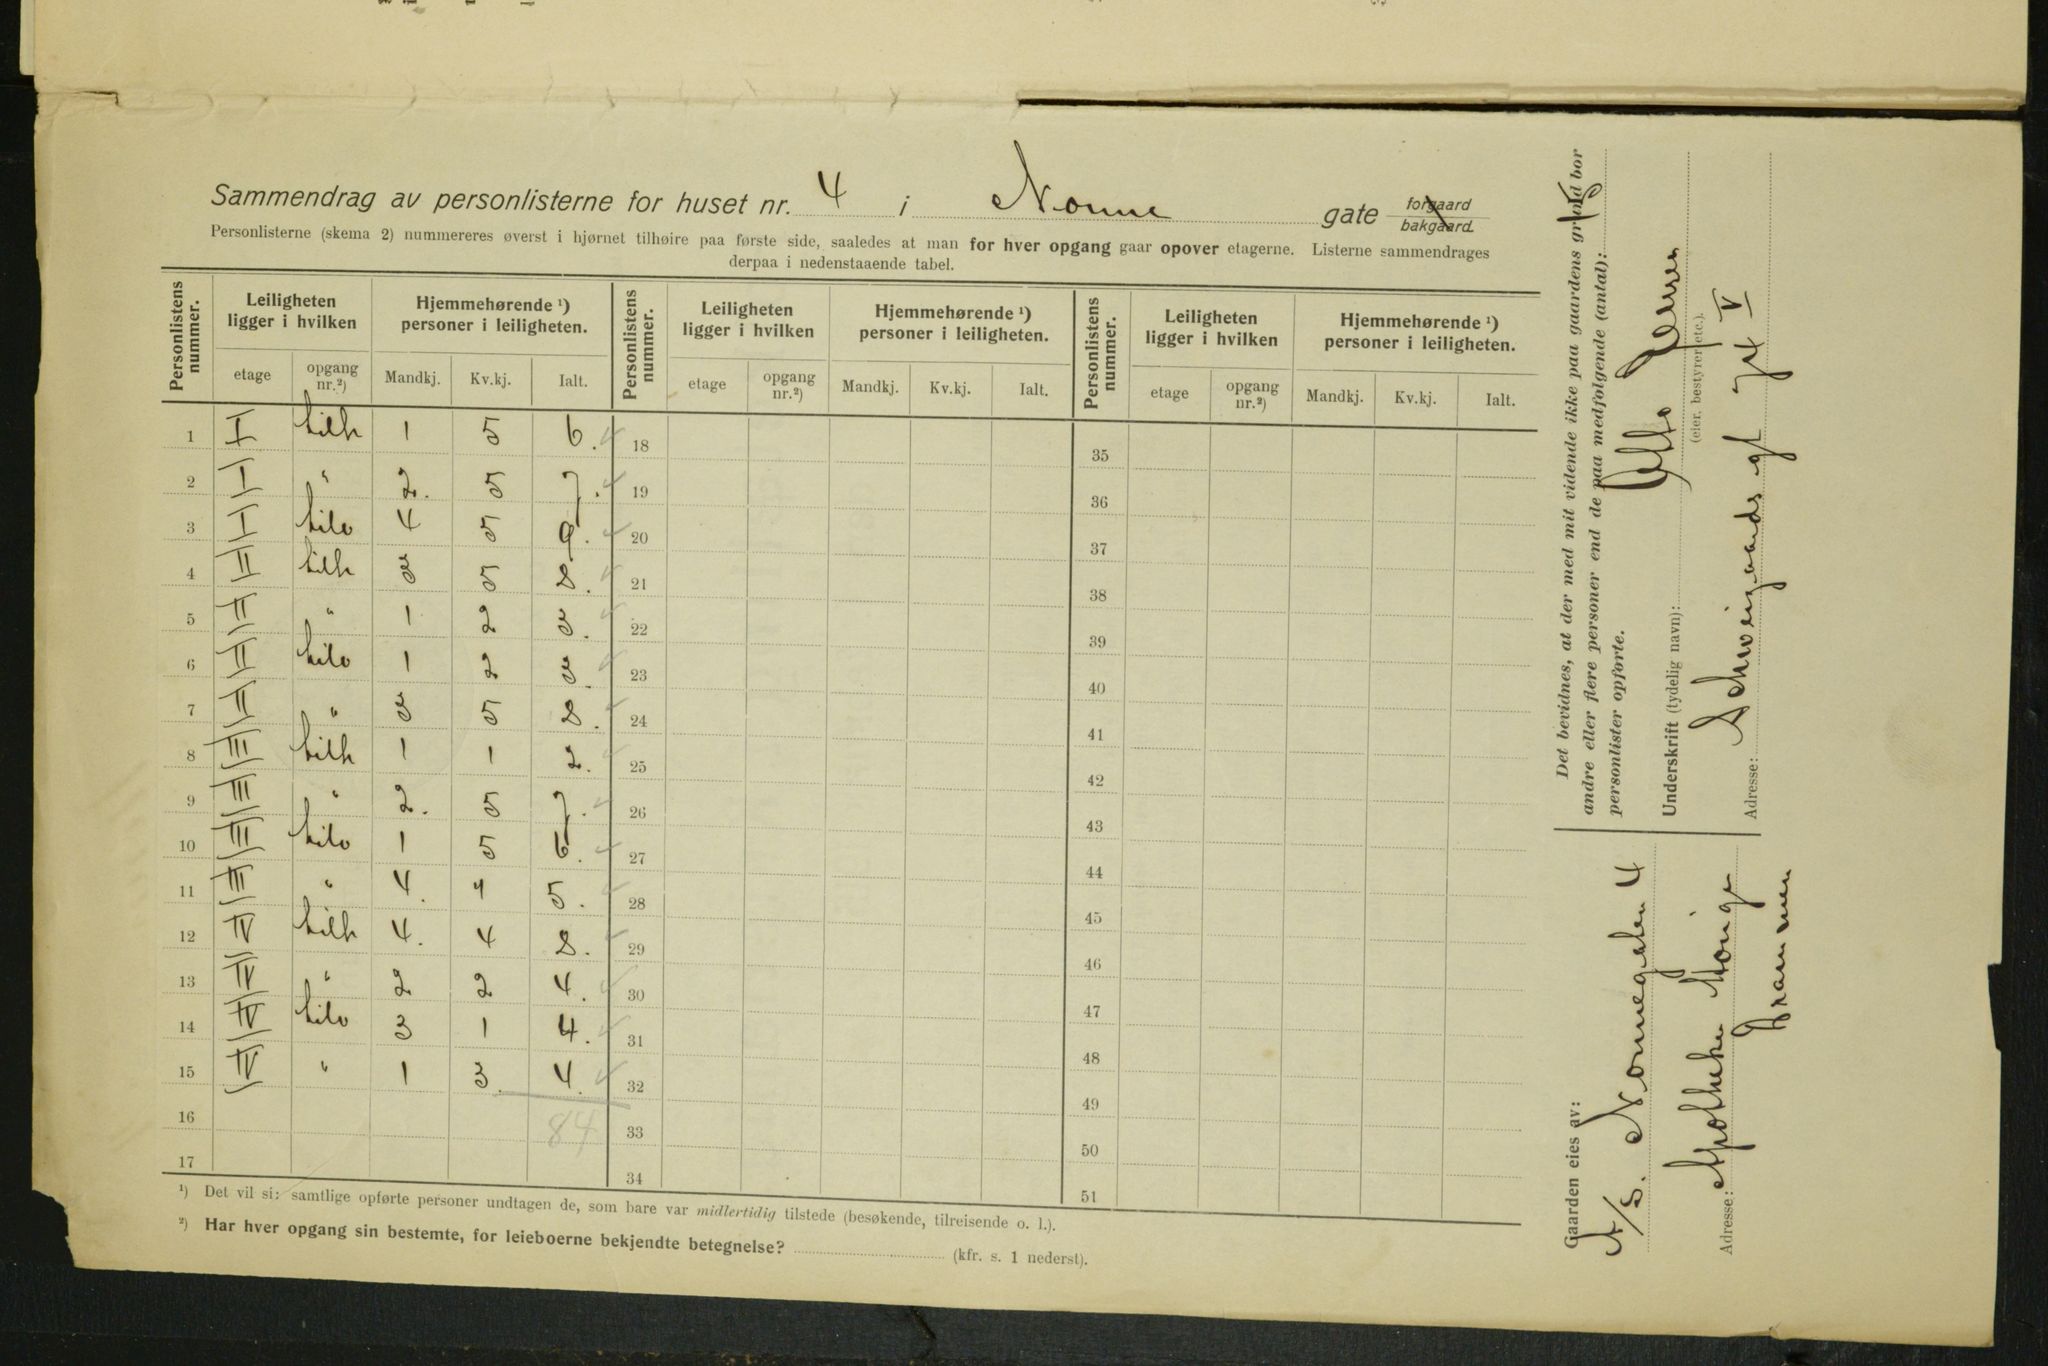 Sammendrag av personlisterne for huset nr. 4 i Nonne gate forgaard bakgaard.
Personlisterne (skema 2) nummereres øverst i hjørnet tilhøire paa første side, saaledes at man for hver opgang gaar opover etagerne. Listerne sammendrages
derpaa i nedenstaaende tabel.
Personlistens nummer. Leiligheten ligger i hvilken Hjemmehørende ¹) personer i leiligheten. Personlistens nummer. Leiligheten ligger i hvilken Hjemmehørende ¹) personer i leiligheten. Personlistens nummer. Leiligheten ligger i hvilken Hjemmehørende ¹) personer i leiligheten.
etage opgang nr.²) Mandkj. Kv.kj. Ialt. etage opgang nr.²) Mandkj. Kv.kj. Ialt. etage opgang nr.²) Mandkj. Kv.kj. Ialt.
1 I tilh 1 5 6. 18 35
2 I " 2. 5 7. 19 36
3 I tilv 4 5 9. 20 37
4 II tilh 3 5 8. 21 38
5 II " 1 2 3. 22 39
6 II tilv 1 2 3. 23 40
7 II " 3 5 8. 24 41
8 III tilh 1 1 2. 25 42
9 III " 2. 5 7. 26 43
10 III tilv 1 5 6. 27 44
11 III " 4. 1 5. 28 45
12 IV tilh 4. 4 8. 29 46
13 IV " 2 2 4. 30 47
14 IV tilv 3 1 4. 31 48
15 IV " 1 3. 4. 32 49
16 84 33 50
17 34 51
¹) Det vil si: samtlige opførte personer undtagen de, som bare var midlertidig tilstede (besøkende, tilreisende o. l.).
²) Har hver opgang sin bestemte, for leieboerne bekjendte betegnelse? (kfr. s. 1 nederst).
Det bevidnes, at der med mit vidende ikke paa gaardens grund bor
andre eller flere personer end de paa medfolgende (antal): 15
personlister opførte.
Underskrift (tydelig navn): Otto Jensen
(eier, bestyrer etc.).
Adresse: Schweigaards gt 74 V
Gaarden eies av:
A/S. Nonnegaten 4
Adresse: Apotheker Moinge
Drammen